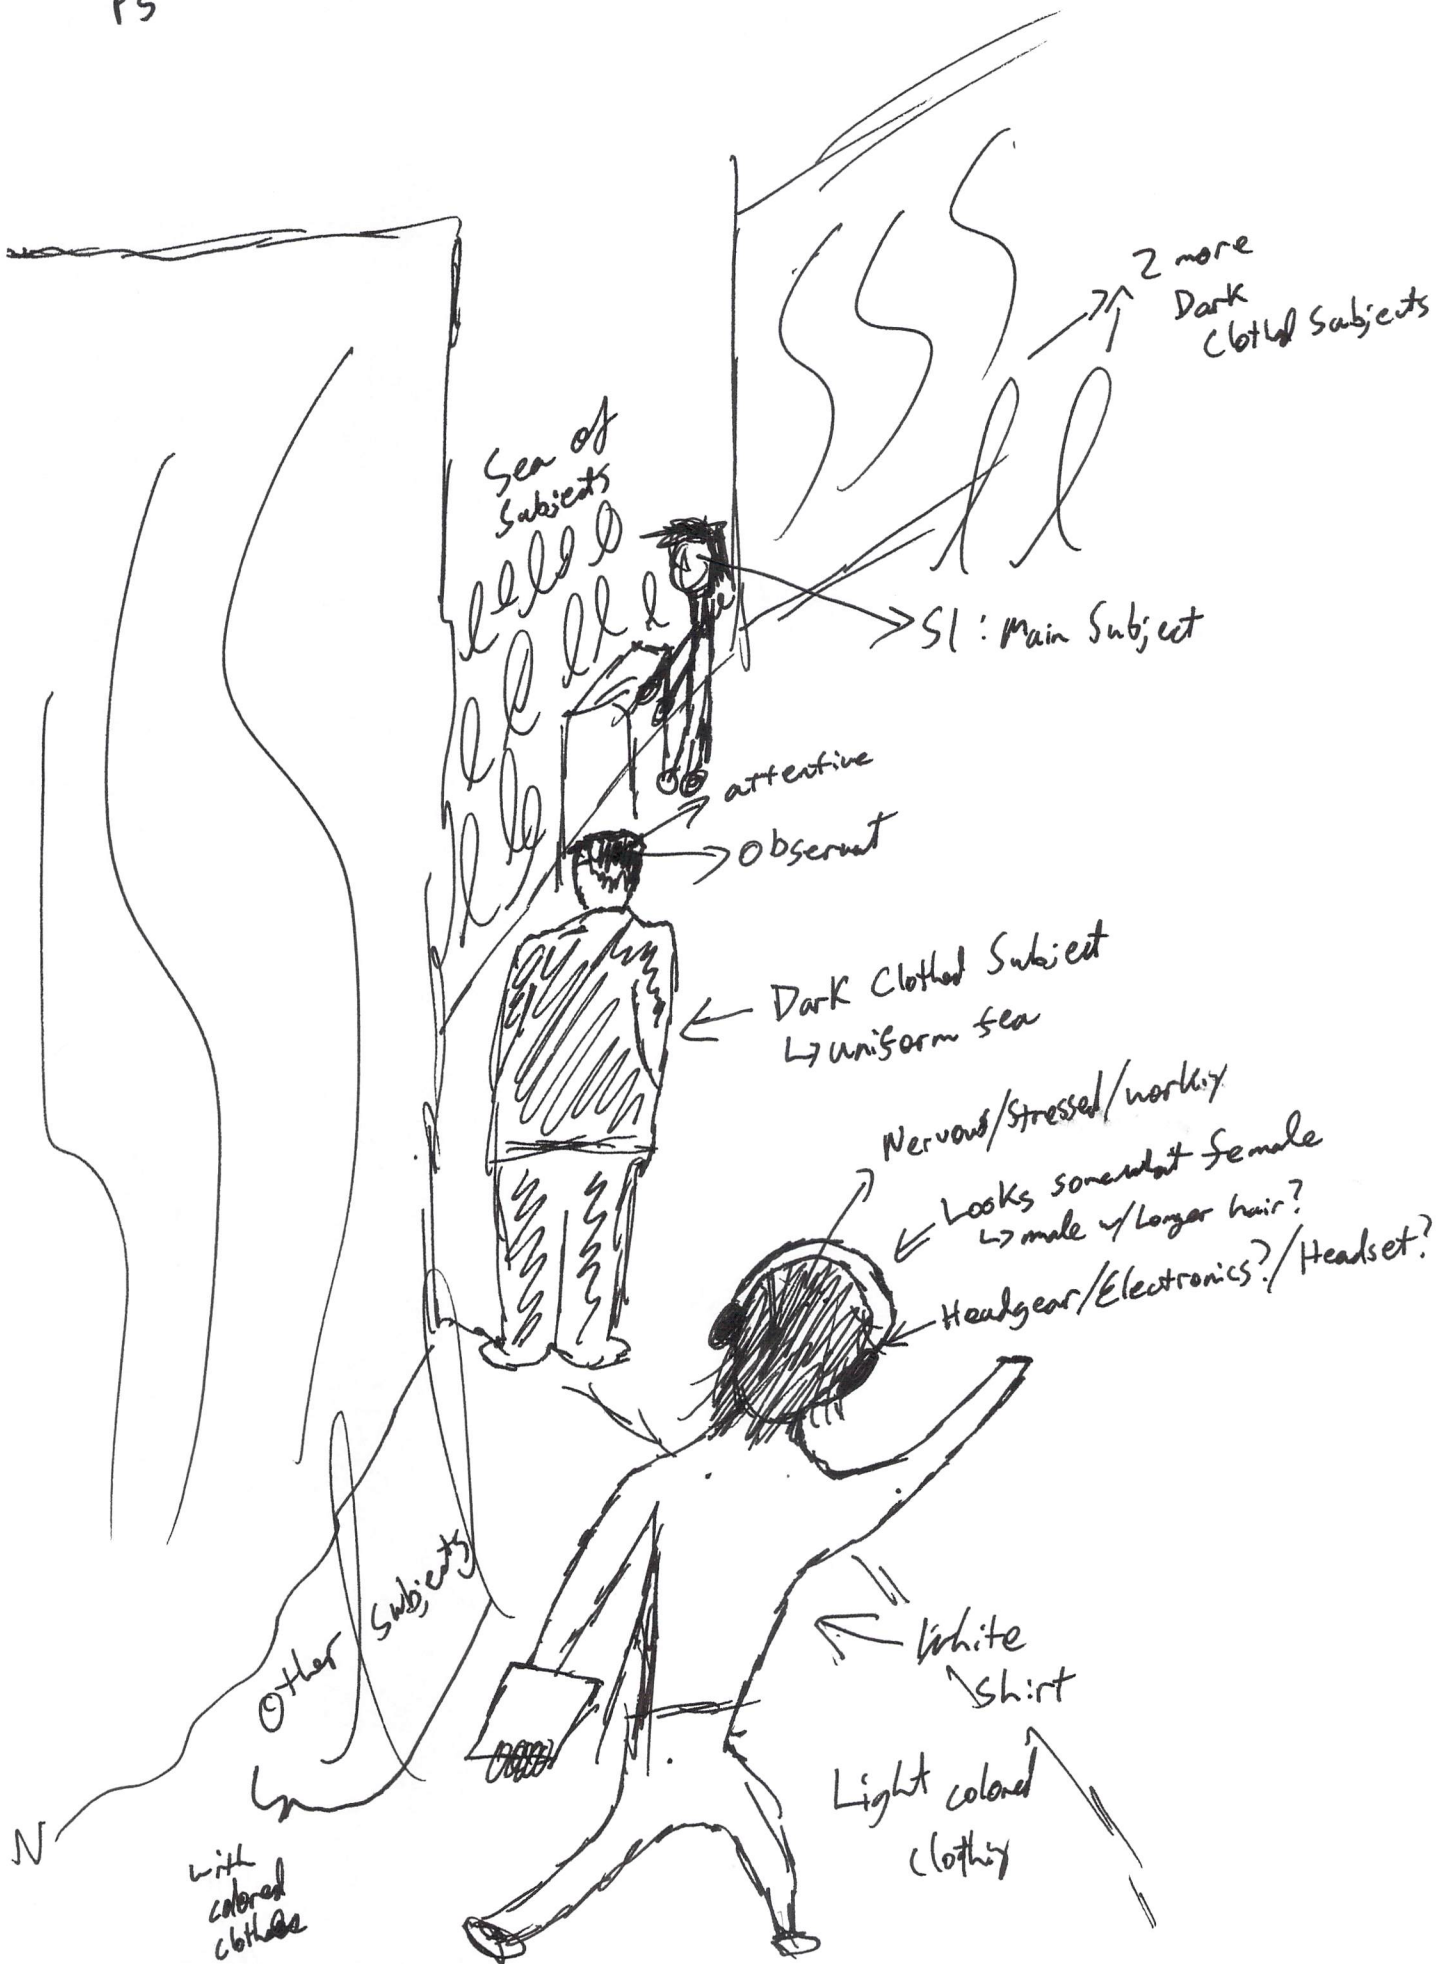 P5
2 more
Dark
Clothed Subjects
Sea of
Subjects
S1: Main Subject
attentive
observant
Dark Clothed Subject
↳ uniform fea
Nervous/Stressed/working
Looks somewhat female
↳ male w/ Longer hair?
Headgear/Electronics?/Headset?
Other subjects
White
Shirt
Light colored
clothing
N
with
colored
clothes